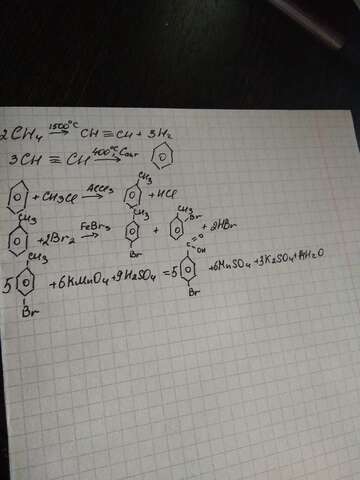 2CH₄ 1500°C → CH≡CH + 3H₂
3CH≡CH 400°C, Cакт →
+ CH₃Cl AlCl₃ → CH₃ + HCl
CH₃ + 2Br₂ FeBr₃ → CH₃ Br + CH₃ Br + 2HBr
5 CH₃ Br + 6KMnO₄ + 9H₂SO₄ = 5 C O OH Br + 6MnSO₄ + 3K₂SO₄ + 14H₂O